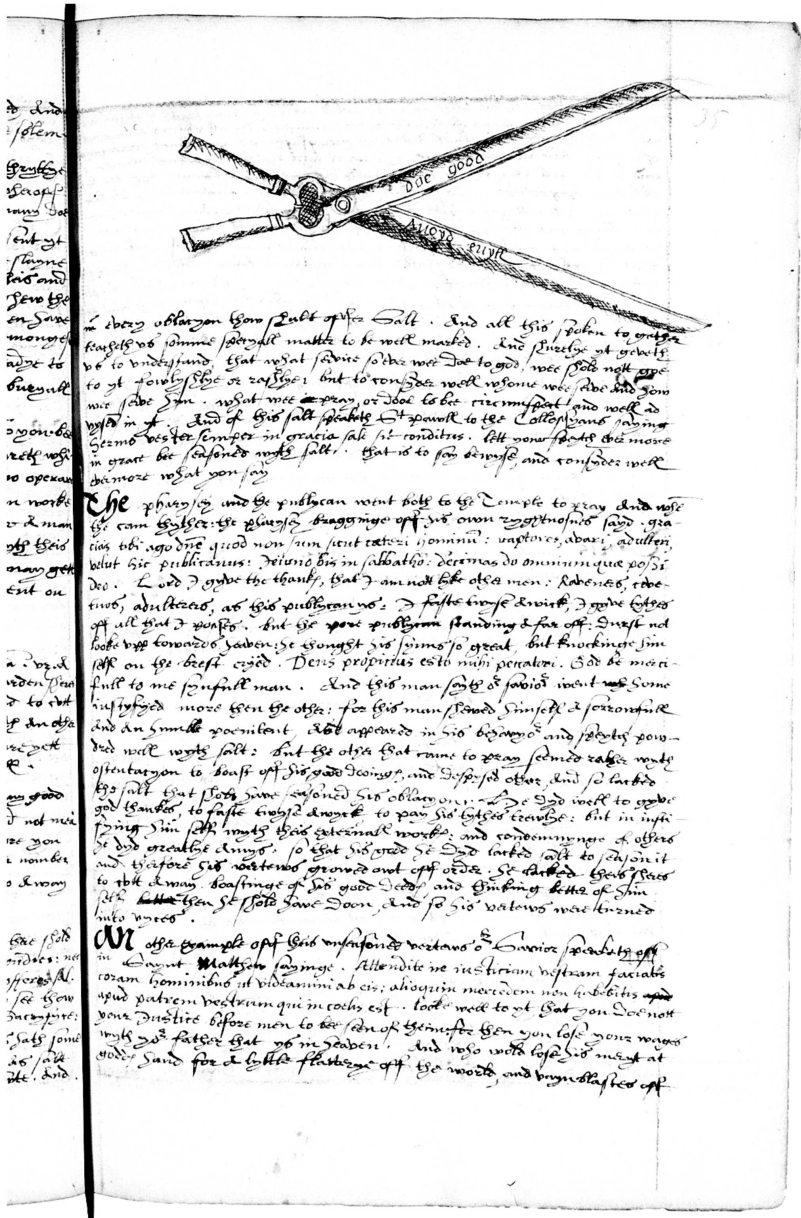 due good
Auoyd euyll
in every oblacyon thow shalt offer Salt. And all this spoken to gather
teacheth vs somme specyall matter to be well marked. And shurelye yt geveth
vs to understand that what service so ever wee doe to god, wee shold nott goe
to yt fowlyshlye or rashlye: but to consyder well whome wee serve and how
wee serve hym. what wee pray, or doe to bee circumspect and well ad
vysed in yt. And of this salt speaketh St pawll to the Collossyans saying
Sermo vester semper in gracia sale sit conditus. lett your speach evermore
in grace bee seasoned wyth salt. that is to say bewyse, and consyder well
evermore what you say
The pharysey and the publycan went both to the Temple to pray And when
the cam thyther: the pharysey bragginge off his own ryghtuosnes sayd. gra-
cias tibi ago dne quod non sum sicut cæteri hominum: raptores, avari, adulteri,
velut hic publicanus: Jeiuno bis in sabbatho: decimas do omnium quæ possi
deo. Lord I gyve the thanks, that I am nott like other men: Raveners, cove-
tuos, adulterers, as this publycan ys: I faste twyse a wick, I gyve tythes
off all that I posses. but the pore publycan standing a far off: durst not
looke vpp towards heaven: he thought his synns so great, but knockinge him
self on the brest cryed. Deus propicius esto mihi peccatori. God be merci-
full to me synfull man. And this man sayth or savior went home
iustyfyed more then the other: for this man shewed himself a sorrowfull
and an humble poenitent, appeared in his behavyor and speach pow-
dred well wyth salt: but the other that came to pray seemed rather wyth
ostentacyon to boast off his good dooings, and despysed other, And so lacked
the salt that shold have seasoned his oblacyon: He dyd well to gyve
god thankes, to faste twyse a wyck to pay his tythes trewlye: but in iusti
fying him self wyth theis externall works: and condemnynge of others
he dyd greatlye amys. so that his good he dyd lacked salt to season it
and therfore his vertews growed owt off order. he lacked theis sheres
to cutt a way boastinge of his good deeds and thinking better of him
self then he shold have doon, And so his vertews were turned
into vyces.
An other example off this vnseasoned vertews or Savior speaketh off
in Saynt Matthew sayinge. Attendite ne iusticiam vestram faciatis
coram hominibus ut videamini ab eis: alioquin mercedem non habebitis
apud patrem vestrum qui in coelis est. looke well to yt that you doe nott
your Justice before men to bee seen of them: for then you lose your wages
wyth yor father that ys in heaven. And who wold lose his meryt at
gods hand for a lyttle flatterye off the world, and vayn blastes off